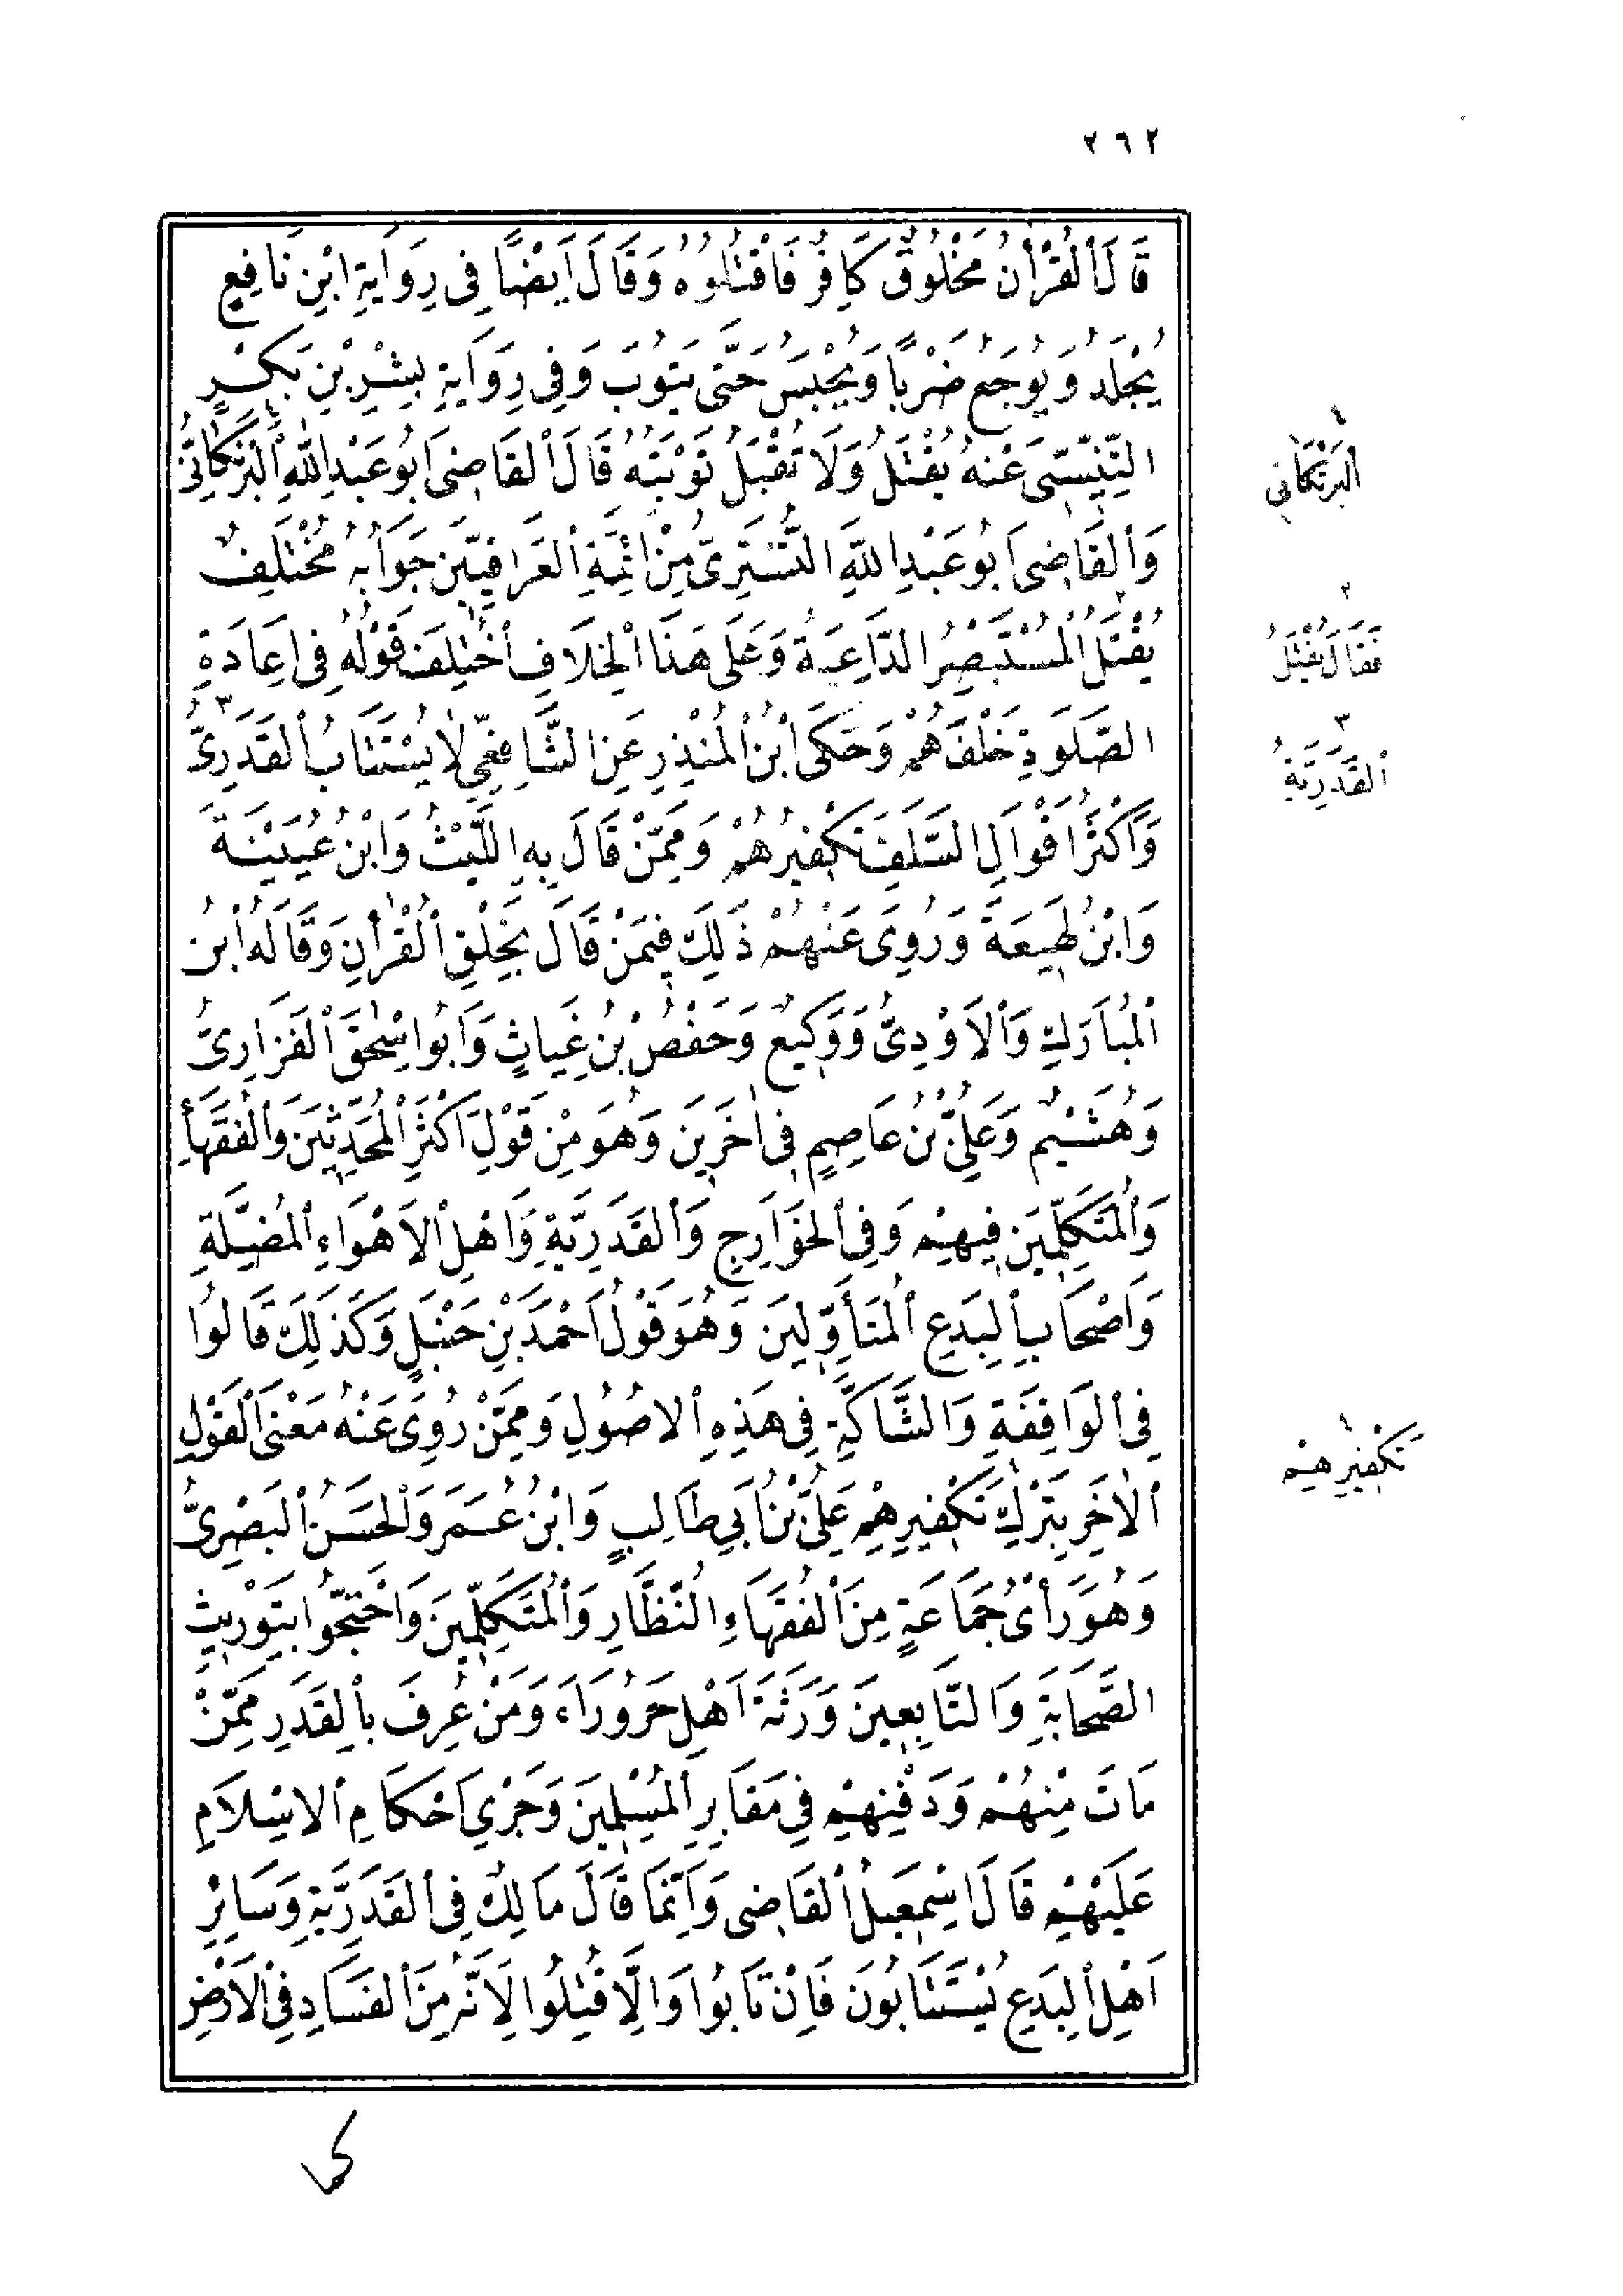 ٢٦٢
قَالَ ٱلْقُرْأٰنُ مَخْلُوقٌ كَافِرٌ فَاقْتُلُوُهُ وَقَالَ اَيْضًا فِى رِوَايَةِ ابْنِ نَافِعٍ
يُجْلَدُ وَيُوجَعُ ضَرْبًا وَيُحْبَسُ حَتّٰى يَتُوبَ وَفِى رِوَايَةِ بِشْرِ بْنِ بَكْرٍ
التِّنِّيسّىِ عَنْهُ يُقْتَلُ وَلَا تُقْبَلُ تَوْبَتُهُ قَالَ ٱلْقَاضِى اَبُو عَبْدِ اللّٰهِ ٱلْبَرْنَكَانِىُّ
وَٱلْقَاضِى اَبُو عَبْدِ اللّٰهِ التُّسْتَرِىُّ مِنْ ائِمَّةِ ٱلْعَرَاقِيّيِنَ جَوَابُهُ مُخْتَلِفٌ
يُقْتَلُ ٱلْمُسْتَبْصِرُ الدَّاعِيَةُ وَعَلَى هَذَا ٱلْخِلَافِ ٱخْتَلَفَ قَوْلُهُ فِى اِعَادَةِ
الصَّلَوةِ خَلْفَهُمْ وَحَكَى ٱبْنُ ٱلْمُنْذِرِ عَنِ الشَّافِعِىِّ لَا يُسْتَتَابُ ٱلْقَدَرِىُّ
وَاَكْثَرُ اَقْوَالِ السَّلَفِ تَكْفِيرُهُمْ وَمِمَّنْ قَالَ بِهِ اللَّيْثُ وَابْنُ عُيَيْنَةَ
وَابْنُ لَهِيعَةَ وَرُوِىَ عَنْهُمْ ذَلِكَ فِيمَنْ قَالَ بِخَلْقِ ٱلْقُرْأٰنِ وَقَالَهُ ٱبْنُ
ٱلْمُبَارَكِ وَٱلْاَوْدِىُّ وَوَكِيعٌ وَحَفْصُ بْنُ غِيَاثٍ وَاَبُو اِسْحٰقَ ٱلْفَزَارِىُّ
وَهُشَيْمٌ وَعَلِىُّ بْنُ عَاصِمٍ فِى اٰخَرِينَ وَهُوَ مِنْ قَوْلِ اَكْثَرِ ٱلْمُحَدِّثِينَ وَٱلْفُقَهَاءِ
وَٱلْمُتَكَلِّمِينَ فِيهِمْ وَفِى ٱلْخَوَارِجِ وَٱلْقَدَرِيَّةِ وَاَهْلِ ٱلْاَهْوَاءِ ٱلْمُضِلَّةِ
وَاَصْحَابِ ٱلْبِدَعِ ٱلْمُتَأَوِّلِينَ وَهُوَ قَوْلُ اَحْمَدَ بْنِ حَنْبَلٍ وَكَذَلِكَ قَالُوا
فِى ٱلْوَاقِفَةِ وَالشَّاكَّةِ فِى هَذِهِ ٱلْاُصُولِ وَمِمَّنْ رُوِىَ عَنْهُ مَعْنَى ٱلْقَوْلِ
ٱلْاٰخَرِ بِتَرْكِ تَكْفِيرِهِمْ عَلِىُّ بْنُ اَبِى طَالِبٍ وَابْنُ عُمَرَ وَٱلْحَسَنُ ٱلْبَصْرِىُّ
وَهُوَ رَأْىُ جَمَاعَةٍ مِنَ ٱلْفُقَهَاءِ النُّظَّارِ وَٱلْمُتَكَلِّمِينَ وَاحْتَجُّوا بِتَوْرِيثِ
الصَّحَابَةِ وَالتَّابِعِينَ وَرَثَةَ اَهْلِ حَرُورَاءَ وَمَنْ عُرِفَ بِٱلْقَدَرِ مِمَّنْ
مَاتَ مِنْهُمْ وَدَفْنِهِمْ فِى مَقَابِرِ ٱلْمُسْلِمِينَ وَجَرْىِ اَحْكَامِ ٱلْاِسْلَامِ
عَلَيْهِمْ قَالَ اِسْمٰعِيلُ ٱلْقَاضِى وَاِنَّمَا قَالَ مَالِكٌ فِى ٱلْقَدَرِيَّةِ وَسَائِرِ
اَهْلِ ٱلْبِدَعِ يُسْتَتَابُونَ فَاِنْ تَابُوا وَاِلَّا قُتِلُوا لِاَنَّهُ مِنَ ٱلْفَسَادِ فِى ٱلْاَرْضِ
٤
ٱلْبَرْتَكَانِى
٢
فَقَالَ يُقْتَلُ
٣
ٱلْقَدَرِيَّةُ
١
تَكْفِيرِهِمْ